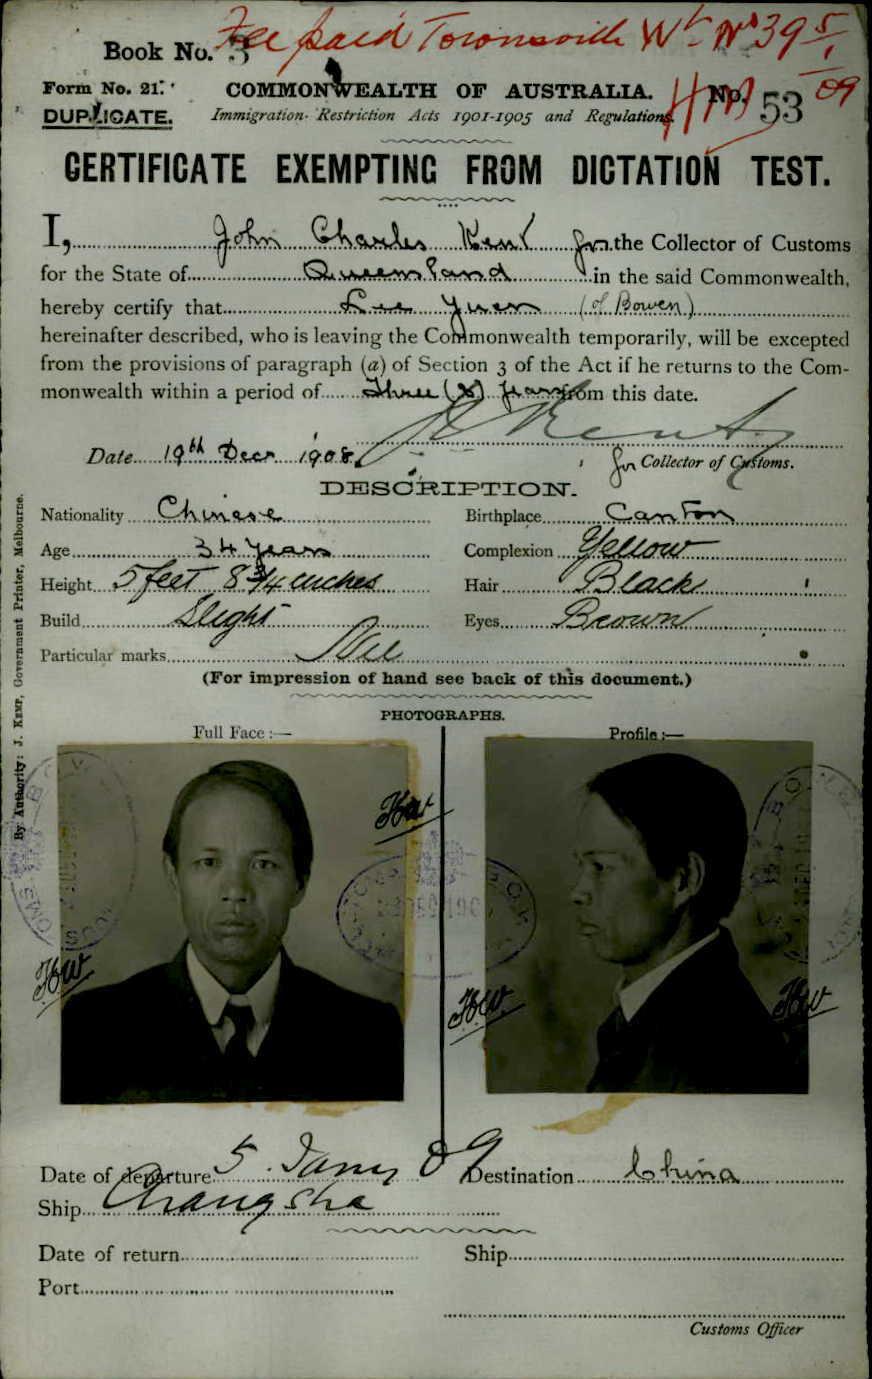 Fee paid Townsville Wt No 39 5/1/09
Book No. 3
Form No. 21.
COMMONWEALTH OF AUSTRALIA.
No. 53
DUPLICATE.
Immigration Restriction Acts 1901-1905 and Regulations.
CERTIFICATE EXEMPTING FROM DICTATION TEST.
I, John Charles Kent for the Collector of Customs
for the State of Queensland in the said Commonwealth,
hereby certify that Lee Yuen (of Bowen)
hereinafter described, who is leaving the Commonwealth temporarily, will be excepted
from the provisions of paragraph (a) of Section 3 of the Act if he returns to the Com-
monwealth within a period of Three (3) years from this date.
Date 19th Decr 1908.
for Collector of Customs.
DESCRIPTION.
Nationality Chinese Birthplace Canton
Age 34 years Complexion Yellow
Height 5 feet 8 3/4 inches Hair Black
Build Slight Eyes Brown
Particular marks Nil
(For impression of hand see back of this document.)
PHOTOGRAPHS.
Full Face :— Profile :—
By Authority: J. KEMP, Government Printer, Melbourne.
Date of departure 5 Jany 09 Destination China
Ship Changsha
Date of return Ship
Port
Customs Officer